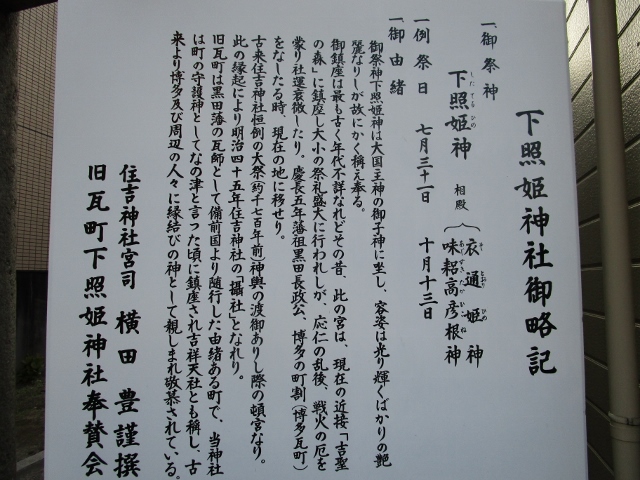 下照姫神社御略記
一御祭神
下照姫神 相殿 衣通姫神
味耜高彦根神
一例祭日 七月三十一日 十月十三日
一御由緒
御祭神下照姫神は大国主神の御子神に坐し、容姿は光り輝くばかりの艶
麗なりしが故にかく称え奉る。
御鎮座は最も古く年代不詳なれどその昔、此の宮は、現在の近接「吉聖
の森」に鎮座し大小の祭礼盛大に行われしが、応仁の乱後、戦火の厄を
蒙り社運衰微したり。慶長五年藩祖黒田長政公、博多の町割(博多瓦町)
をなしたる時、現在の地に移せり。
古来住吉神社恒例の大祭(約千七百年前)神輿の渡御ありし際の頓宮なり。
此の縁起により明治四十五年住吉神社の「攝社」となれり。
旧瓦町は黒田藩の瓦師として備前国より随行した由緒ある町で、当神社
は町の守護神としてなの津と言った頃に鎮座され吉祥天社とも称し、古
来より博多及び周辺の人々に縁結びの神として親しまれ敬恭されている。
住吉神社宮司 横田 豊謹撰
旧瓦町下照姫神社奉賛会